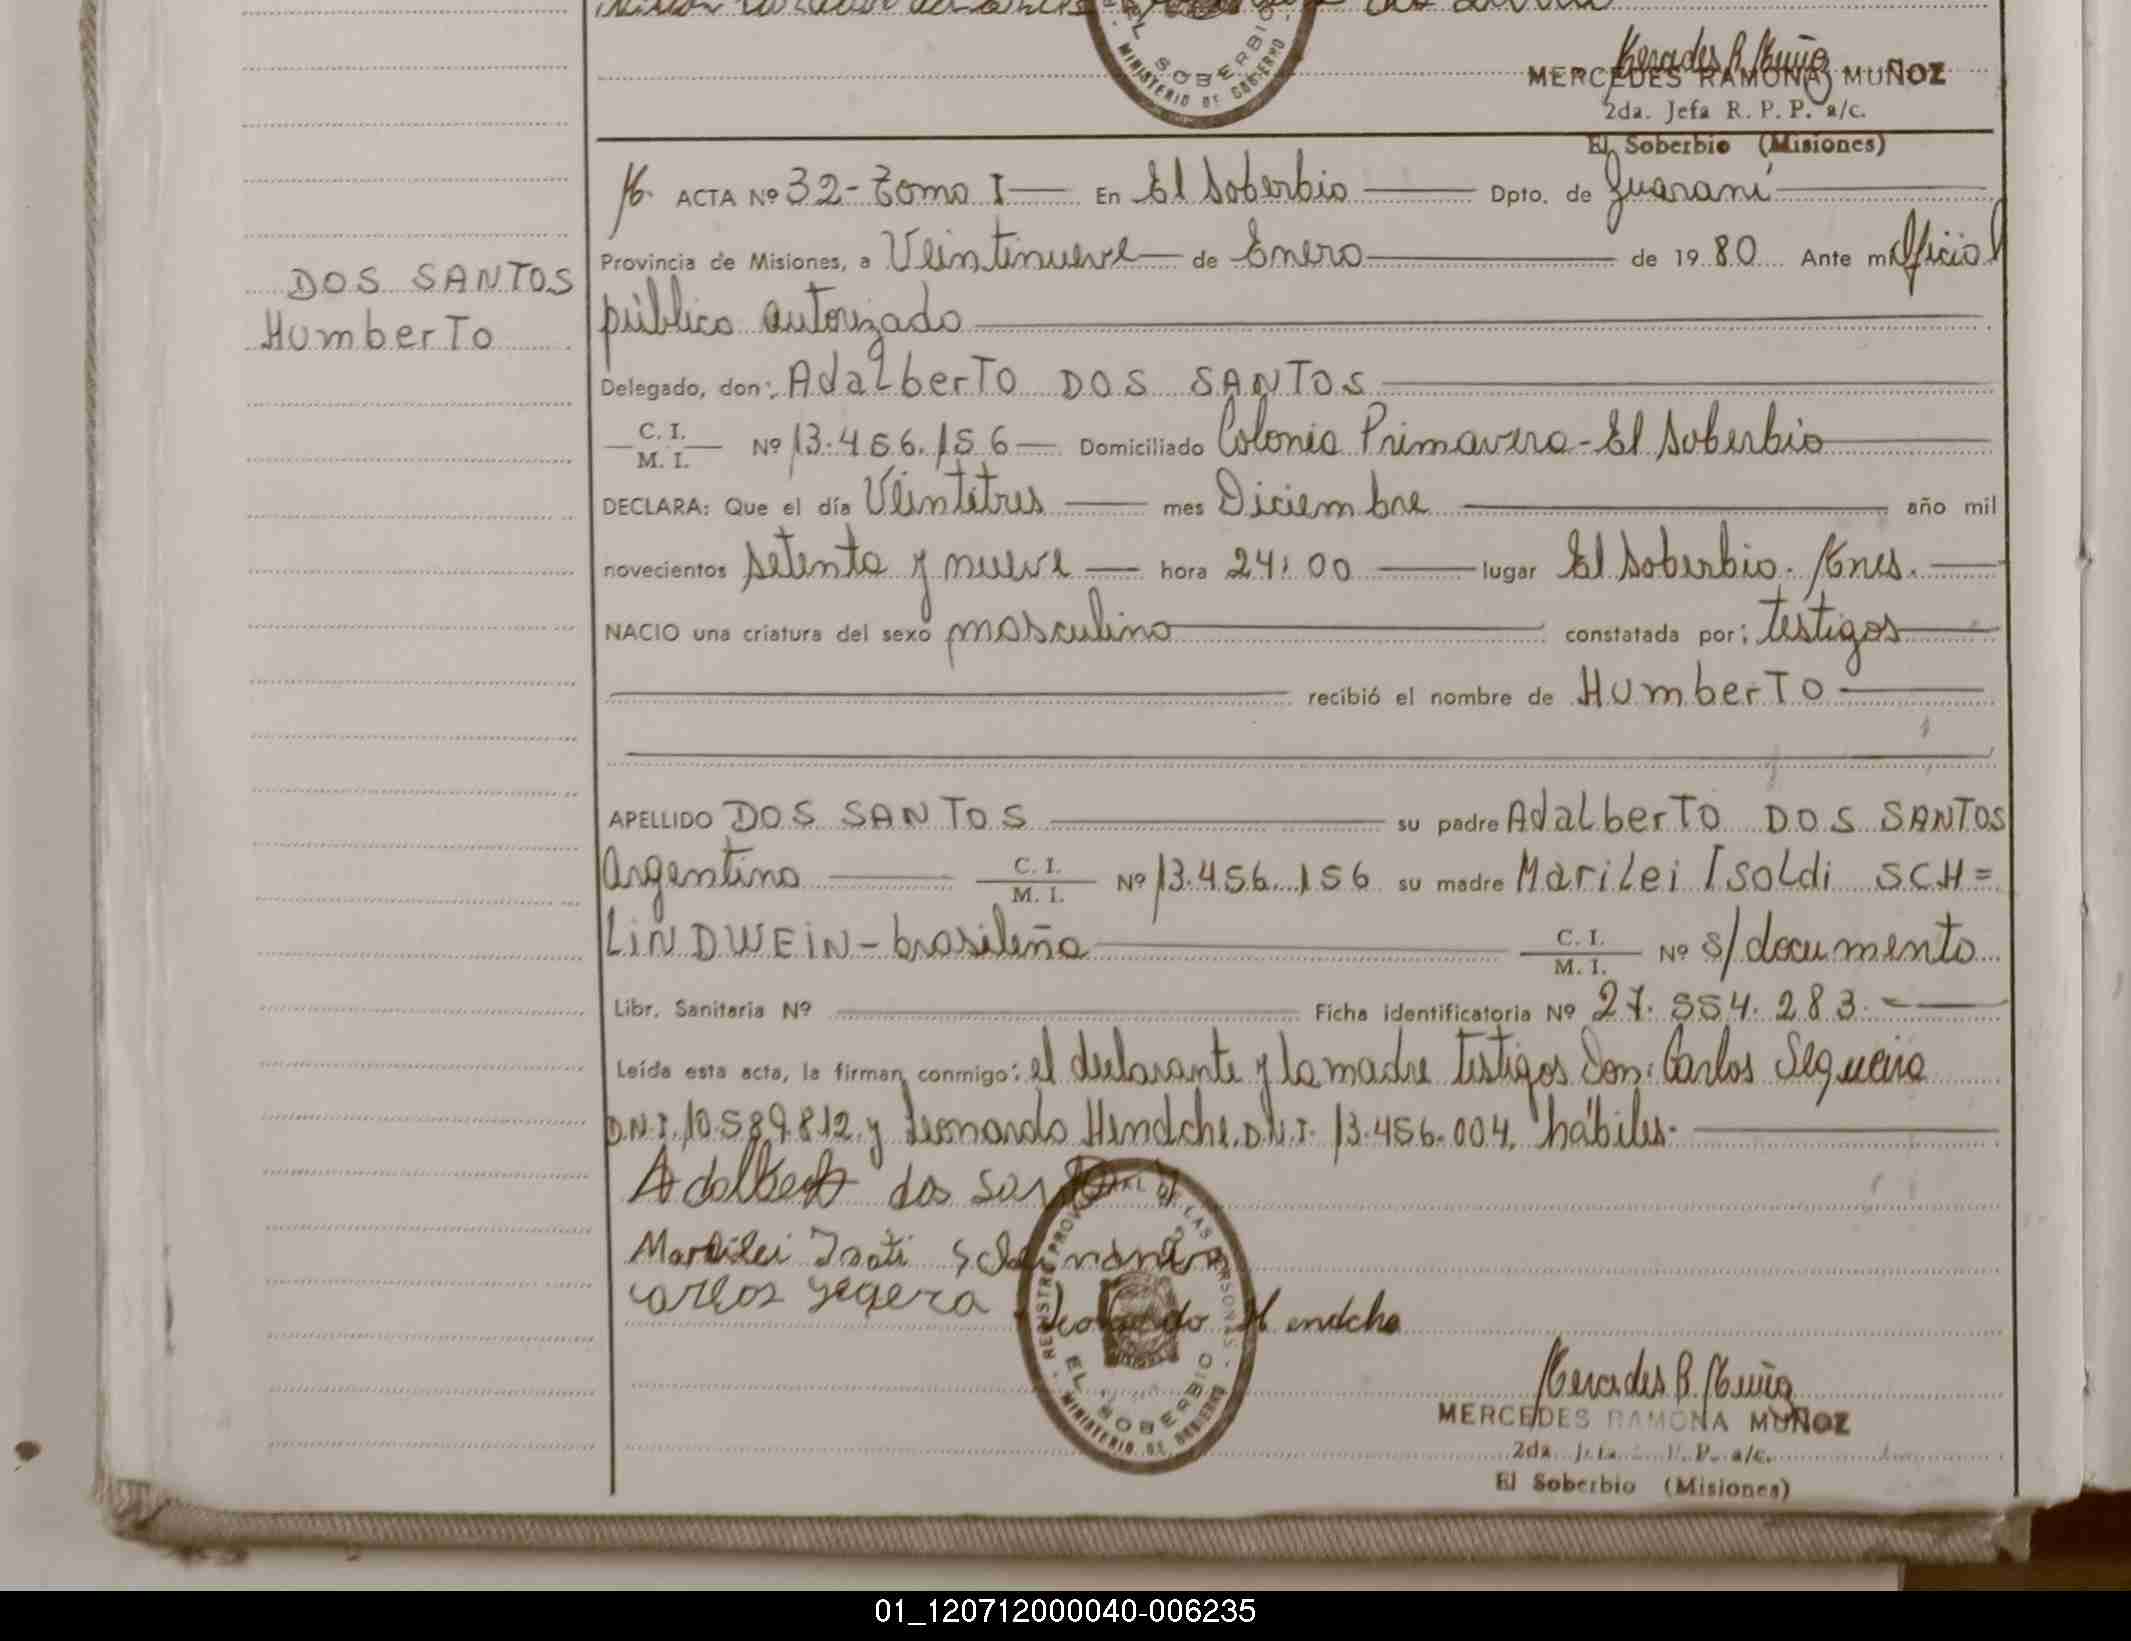 EL SOBERBIO
MINISTERIO DE GOBIERNO
Mercedes R. Muñoz
MERCEDES RAMONA MUÑOZ
2da. Jefa R. P. P. a/c.
El Soberbio (Misiones)
ACTA Nº 32 - Tomo I En El Soberbio Dpto. de Guaraní
Provincia de Misiones, a Veintinueve de Enero de 1980 Ante mí Oficial
DOS SANTOS
Humberto
público autorizado
Delegado, don: Adalberto DOS SANTOS
C. I. M. I. Nº 13.456.156 Domiciliado Colonia Primavera - El Soberbio
DECLARA: Que el día Veintitres mes Diciembre año mil
novecientos setenta y nueve hora 24:00 lugar El Soberbio. Mnes.
NACIO una criatura del sexo masculino constatada por: testigos
recibió el nombre de Humberto
APELLIDO DOS SANTOS su padre Adalberto DOS SANTOS
Argentino C. I. M. I. Nº 13.456.156 su madre Marilei Isoldi SCH=
LINDWEIN - brasileña C. I. M. I. Nº s/documento
Libr. Sanitaria Nº Ficha identificatoria Nº 27.554.283.
Leída esta acta, la firman conmigo: el declarante y la madre testigos Don: Carlos Sequeira
D.N.I. 10.589.812 y Leonardo Hendche. D.N.I. 13.456.004. hábiles.
Adalberto dos Santo
Marilei Isoti
Carlos Segera Leonardo Hendche
REGISTRO PROVINCIAL DE LAS PERSONAS
EL SOBERBIO
MINISTERIO DE GOBIERNO
Mercedes R. Muñoz
MERCEDES RAMONA MUÑOZ
2da. Jefa R. P. P. a/c.
El Soberbio (Misiones)
01_120712000040-006235